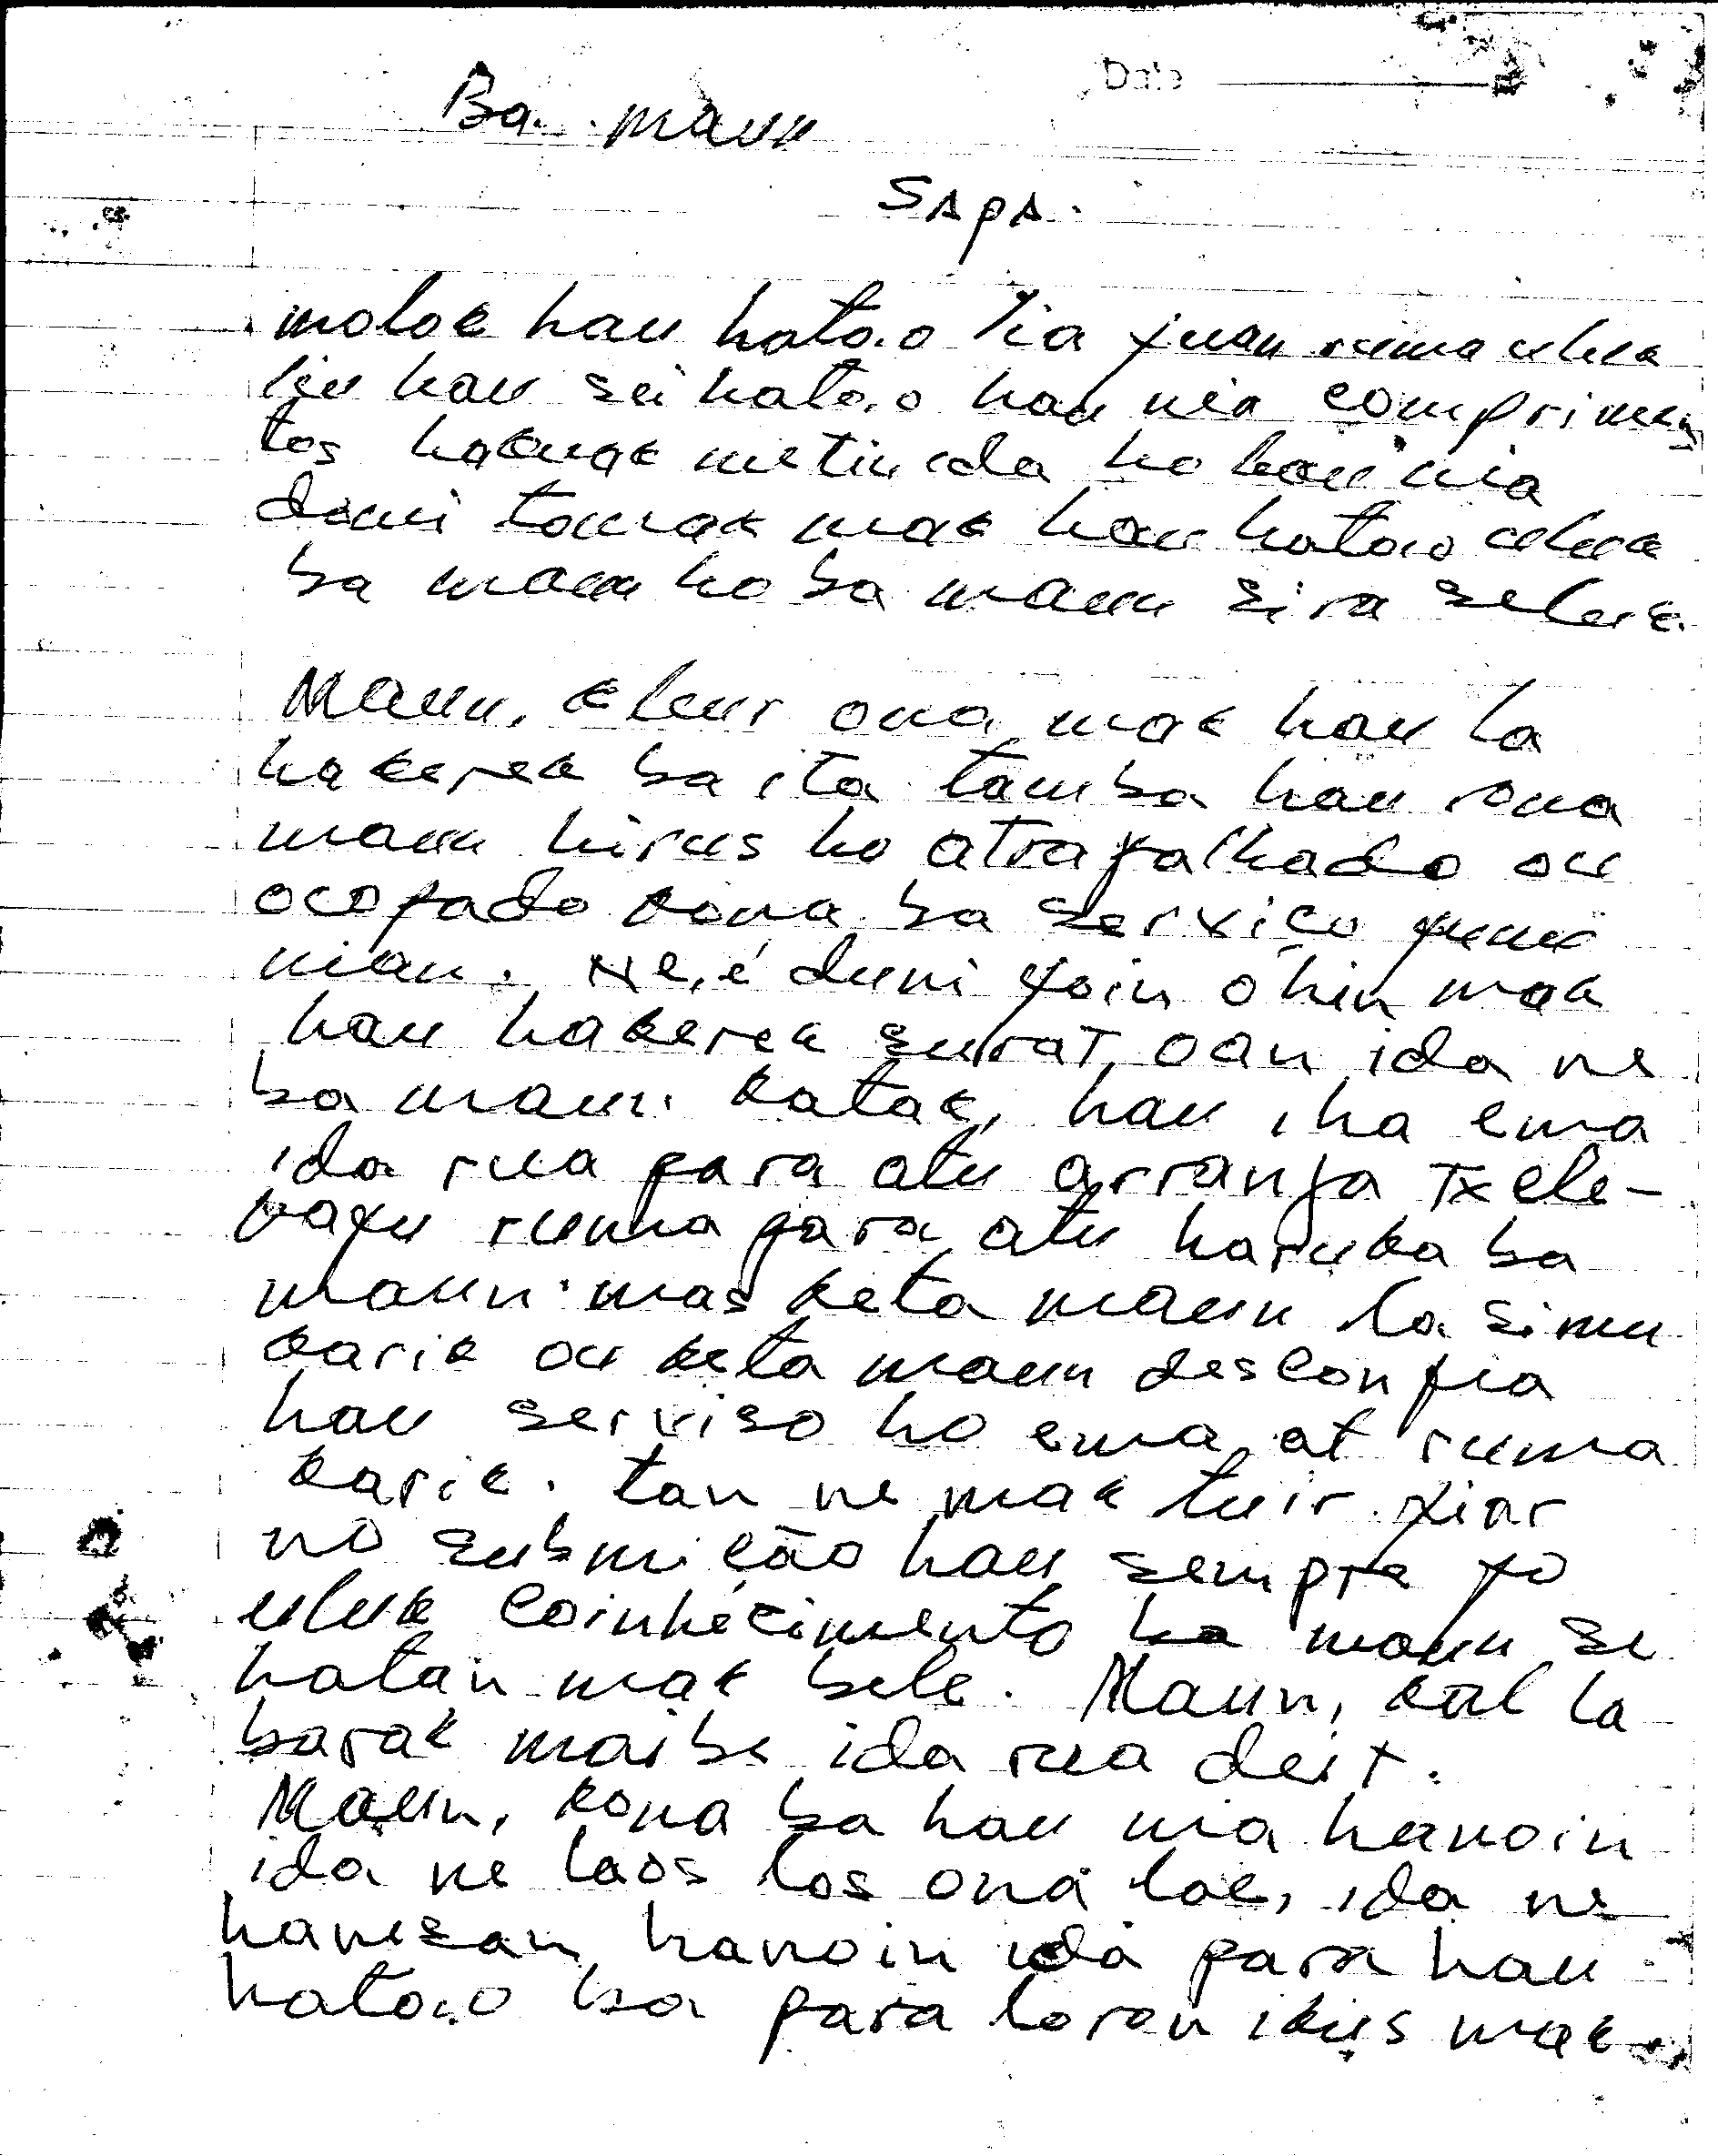 Date
Ba. maun
SAPA.
molok hau hato.o lia fuan ruma uluk
liu hau sei hato.o hau nia comprimen
tos hakuak metin ida ho hau nia
domi tomak mak hau hato.o uluk
ba maun ho ba maun sira seluk.
Maun, kleur ona mak hau la
hakerek ba ita tamba hau rona
maun hirus ho atrapalhado ou
ocopado kona ba serviço funu
nian. Ne,é duni foin ohin mak
hau hakerek surat oan ida ne
ba maun. katak, hau iha ema
ida rua para atu arranja Txele-
vaxu ruma para atu haruka ba
maun. mas keta maun la simu
karik ou keta maun desconfia
hau serviso ho ema at ruma
karik. tan ne mak tuir fiar
no submição hau sempre fo
uluk coinhecimento ba maun se
hatan mak bele. Maun, kal la
barak maibe ida rua deit.
Maun, kona ba hau nia hanoin
ida ne laos los ona lae, ida ne
hanesan hanoin ida para hau
hato.o ba para loron ikus mak